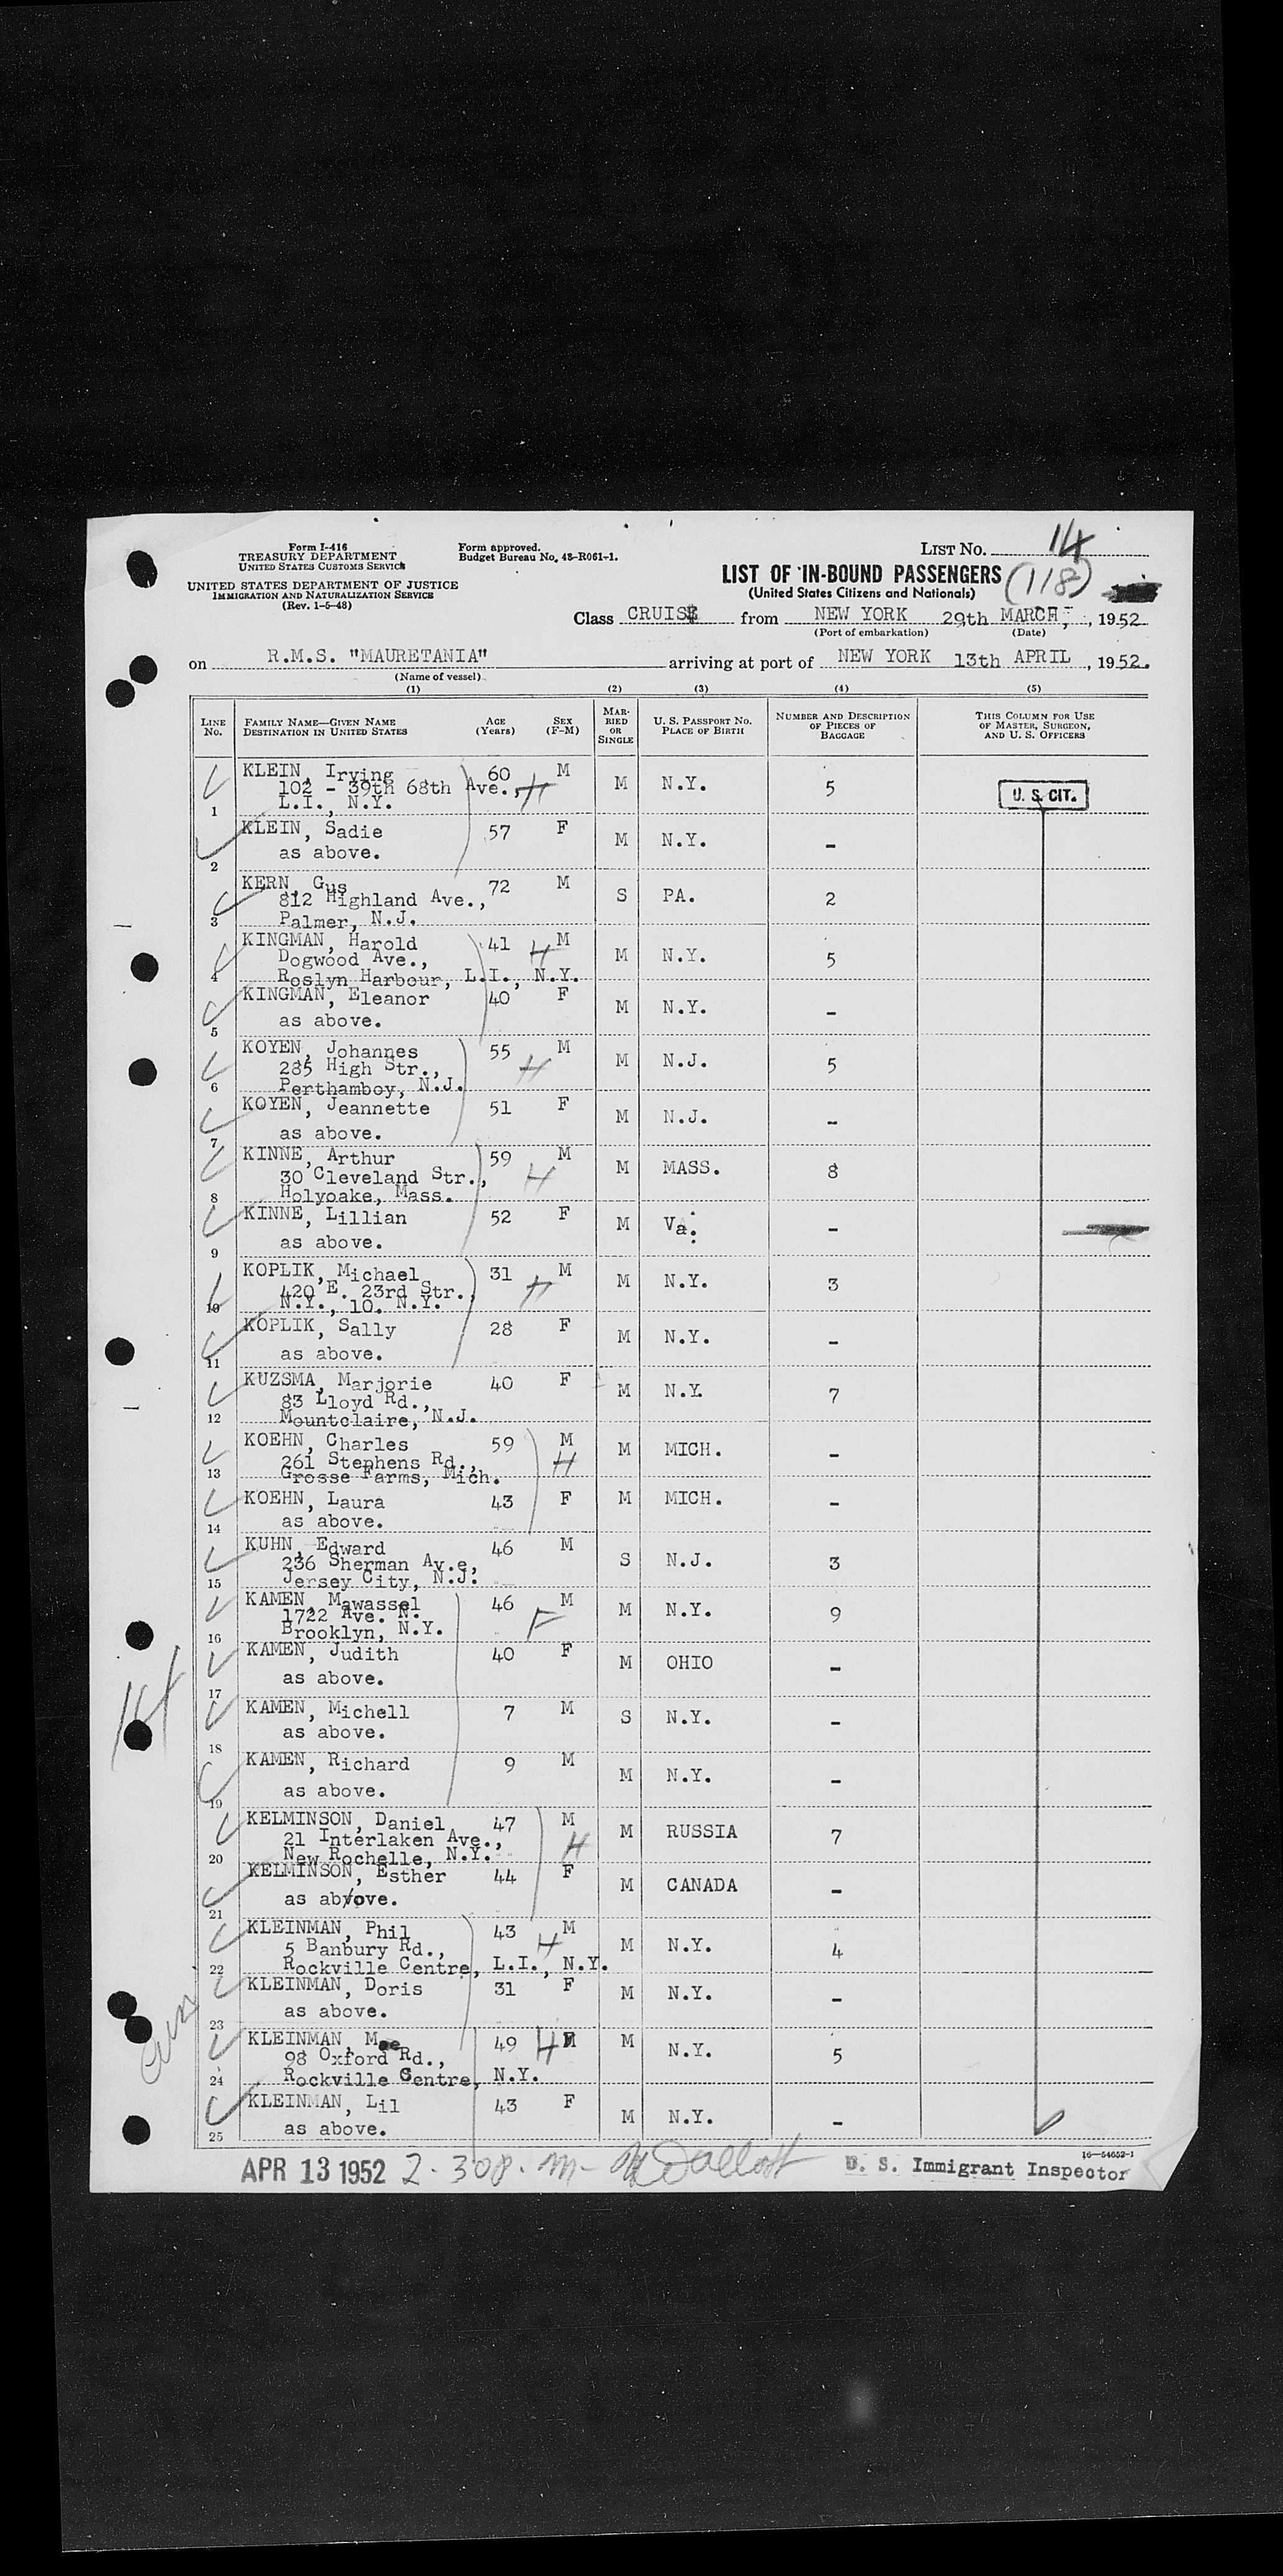 Form I-416
TREASURY DEPARTMENT
UNITED STATES CUSTOMS SERVICE
UNITED STATES DEPARTMENT OF JUSTICE
IMMIGRATION AND NATURALIZATION SERVICE
(Rev. 1-5-48)
Form approved.
Budget Bureau No. 43-R061-1.
LIST NO. 14
LIST OF IN-BOUND PASSENGERS (118)
(United States Citizens and Nationals)
Class CRUISE from NEW YORK 29th MARCH, 1952
(Port of embarkation) (Date)
on R.M.S. "MAURETANIA" arriving at port of NEW YORK 13th APRIL, 1952.
(Name of vessel)
(1) (2) (3) (4) (5)
LINE NO. FAMILY NAME—GIVEN NAME DESTINATION IN UNITED STATES AGE (Years) SEX (F-M) MARRIED OR SINGLE U. S. PASSPORT NO. PLACE OF BIRTH NUMBER AND DESCRIPTION OF PIECES OF BAGGAGE THIS COLUMN FOR USE OF MASTER, SURGEON, AND U. S. OFFICERS
KLEIN, Irving 60 M M N.Y. 5 U. S. CIT.
102 - 39th 68th Ave., H
1 L.I., N.Y.
KLEIN, Sadie 57 F M N.Y. -
2 as above.
KERN, Gus 72 M S PA. 2
812 Highland Ave.,
3 Palmer, N.J.
KINGMAN, Harold 41 H M M N.Y. 5
Dogwood Ave.,
4 Roslyn Harbour, L.I., N.Y.
KINGMAN, Eleanor 40 F M N.Y. -
5 as above.
KOYEN, Johannes 55 M M N.J. 5
285 High Str., H
6 Perthamboy, N.J.
KOYEN, Jeannette 51 F M N.J. -
7 as above.
KINNE, Arthur 59 M M MASS. 8
30 Cleveland Str., H
8 Holyoake, Mass.
KINNE, Lillian 52 F M Va. -
9 as above.
KOPLIK, Michael 31 M M N.Y. 3
420 E. 23rd Str., H
10 N.Y., 10. N.Y.
KOPLIK, Sally 28 F M N.Y. -
11 as above.
KUZSMA, Marjorie 40 F M N.Y. 7
83 Lloyd Rd.,
12 Mountclaire, N.J.
KOEHN, Charles 59 M M MICH. -
261 Stephens Rd., H
13 Grosse Farms, Mich.
KOEHN, Laura 43 F M MICH. -
14 as above.
KUHN, Edward 46 M S N.J. 3
236 Sherman Av.e,
15 Jersey City, N.J.
KAMEN, Mawassel 46 M M N.Y. 9
1722 Ave. N. F
16 Brooklyn, N.Y.
KAMEN, Judith 40 F M OHIO -
17 as above.
KAMEN, Michell 7 M S N.Y. -
18 as above.
KAMEN, Richard 9 M M N.Y. -
19 as above.
KELMINSON, Daniel 47 M M RUSSIA 7
21 Interlaken Ave., H
20 New Rochelle, N.Y.
KELMINSON, Esther 44 F M CANADA -
21 as above.
KLEINMAN, Phil 43 M M N.Y. 4
5 Banbury Rd., H
22 Rockville Centre, L.I., N.Y.
KLEINMAN, Doris 31 F M N.Y. -
23 as above.
KLEINMAN, 49 H M M N.Y. 5
98 Oxford Rd.,
24 Rockville Centre, N.Y.
KLEINMAN, Lil 43 F M N.Y. -
25 as above.
16—54652-1
APR 13 1952 2-30 P.M. U. S. Immigrant Inspector